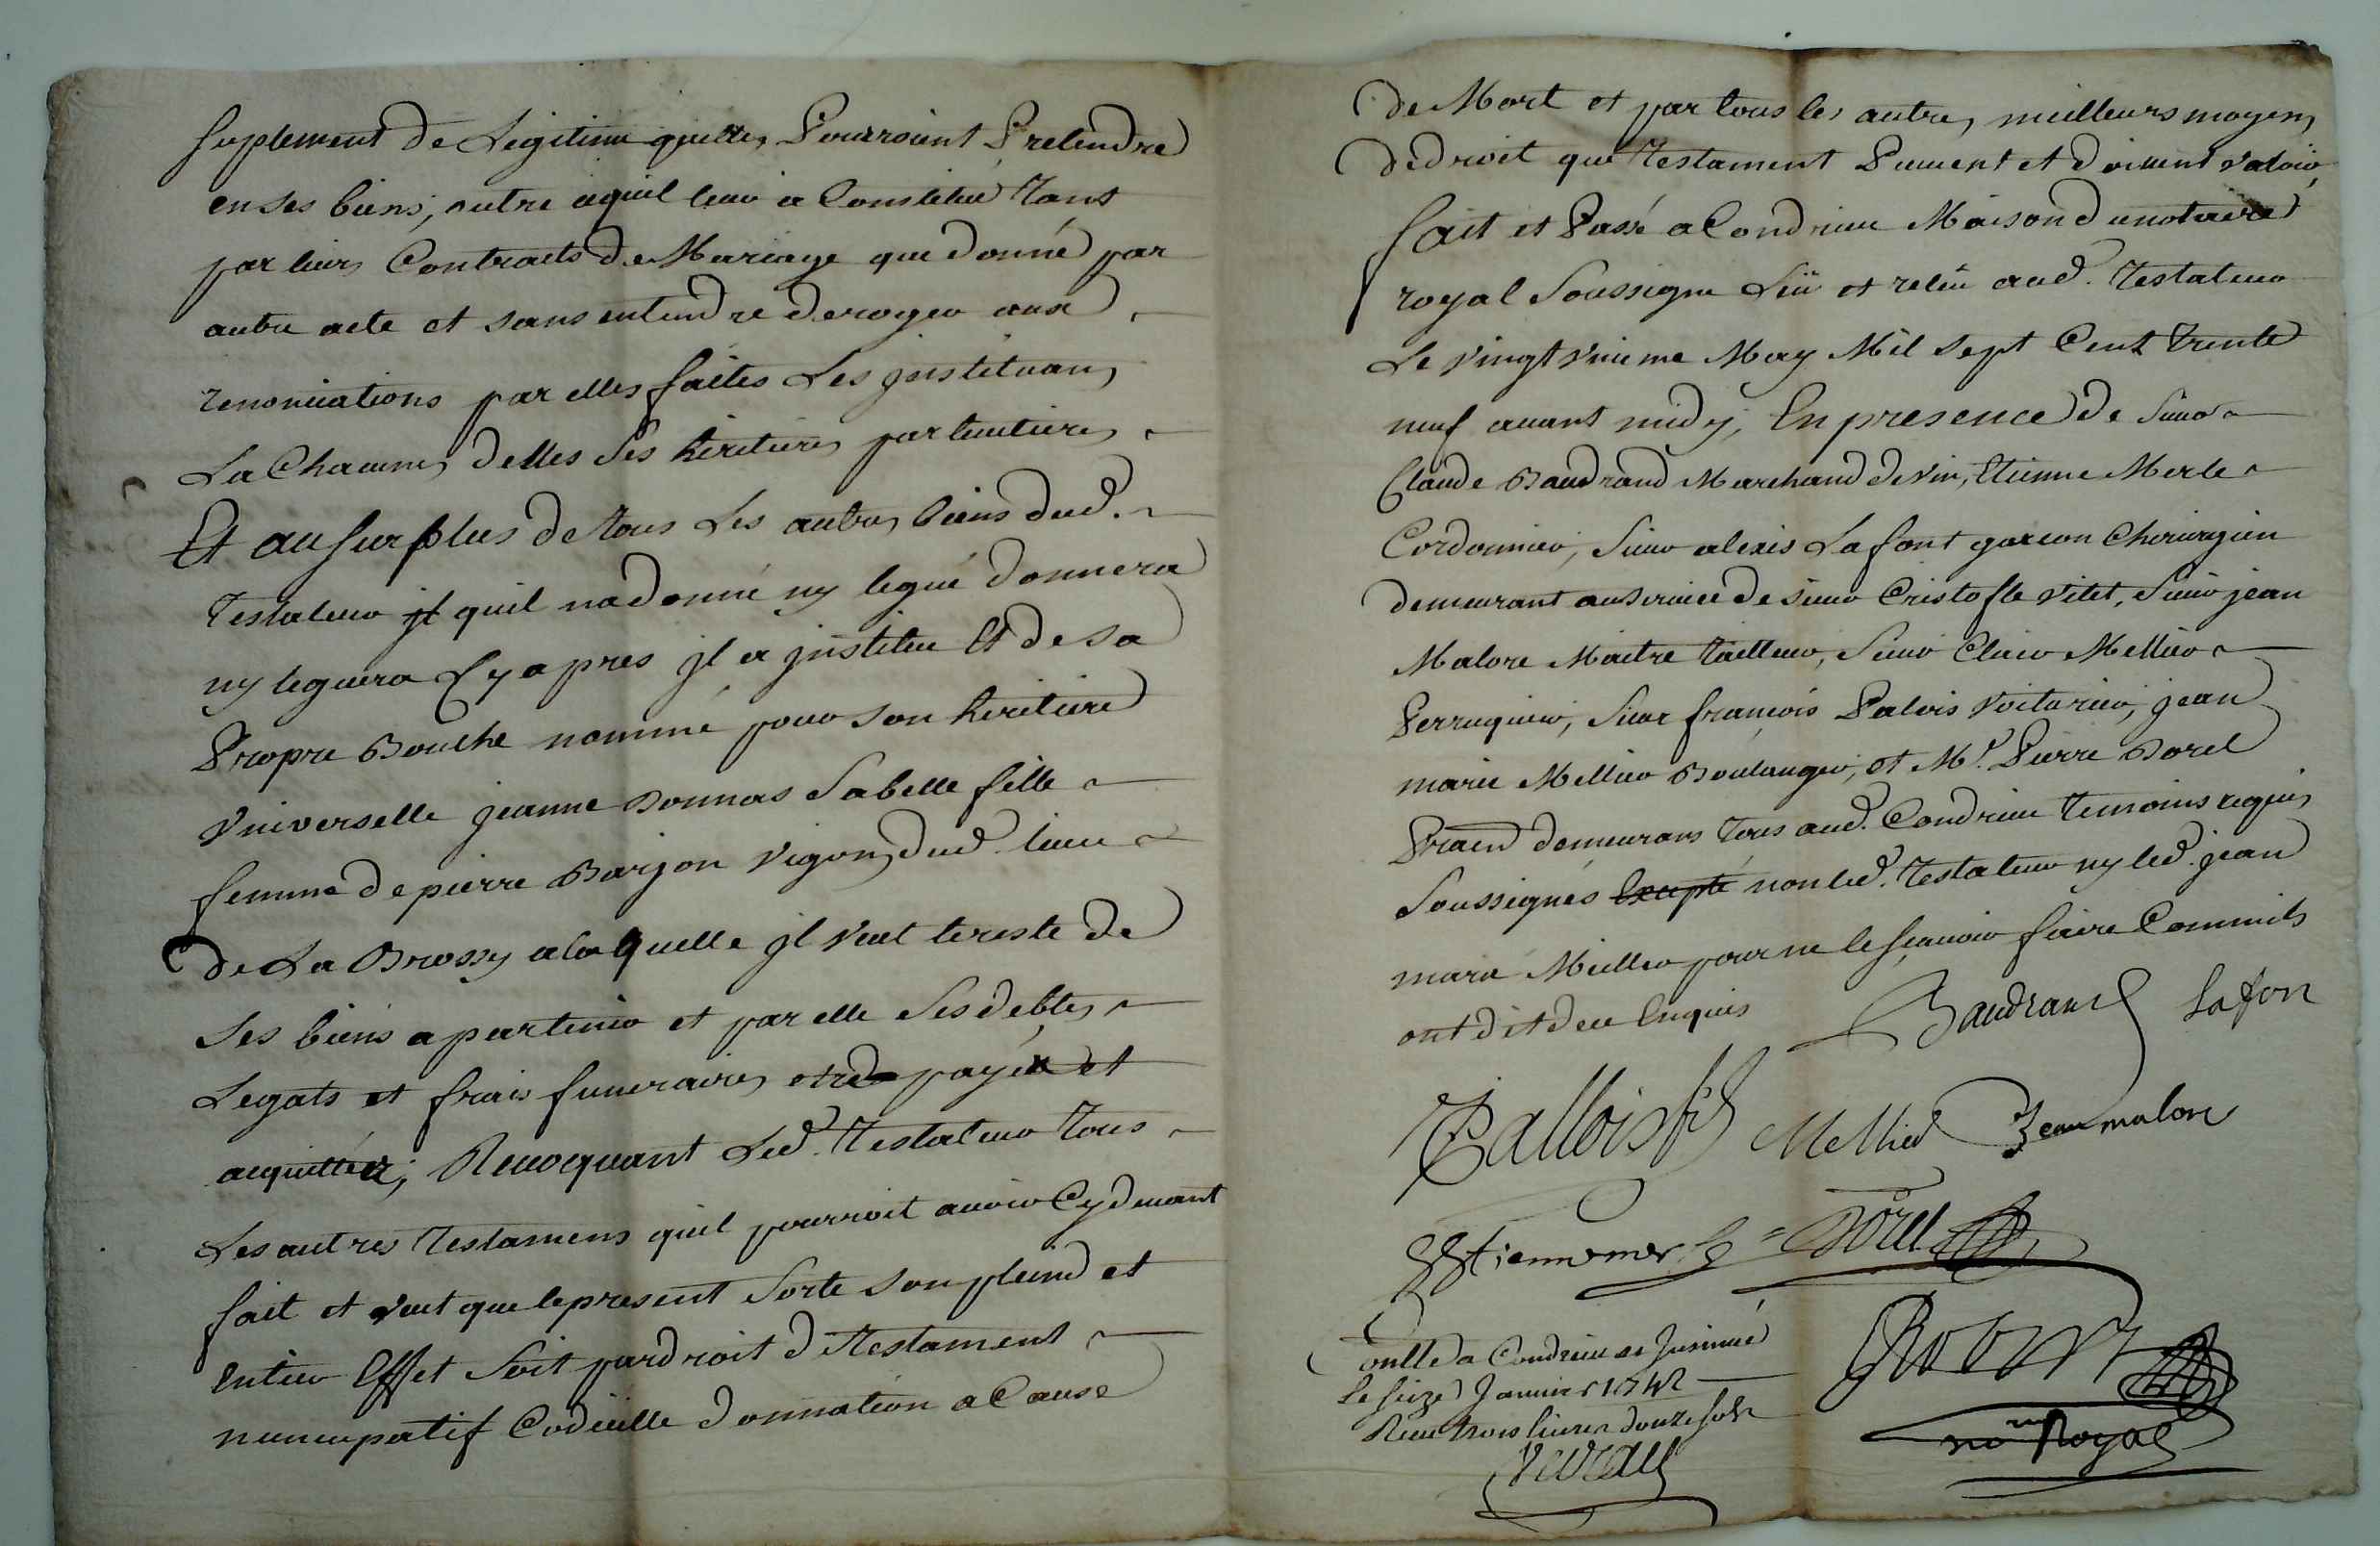 suplement de Legitime quelles Pourroient Pretendre
en ses biens, outre ce quil leur a Constitué Tant
par leurs Contracts de Mariage que donné par
autre acte et sans entendre deroger aux
renonciations par elles faites Les jnstituans
La Chacunes delles Ses heritieres particulieres
Et au Surplus de tous Les autres biens dud.
Testateur jl quil na donné ny legué donnera
ny leguera Cy apres jl a jnstitué Et de sa
Propre Bouche nommé pour son heritiere
Vniverselle jeanne Donnas Sa belle fille
femme de pierre Barjon Vigon dud. lieu
de La Brossy a la quelle jl Veut le reste de
Ses biens apartenir et par elle Ses debtes
Legats et frais funeraires etre payés et
acquittés, Reuocquant Led. Testateur Tous
Les autres Testamens quil pourroit auoir Cy deuant
fait et Veut que le present Sorte son pleind et
entier Effet Soit par droit de Testament
nuncupatif Codicille donnation a Cause
de Mort et par tous les autres meilleurs moyens
de droit que Testament Peuuent et doiuent Valoir,
fait et Passé a Condrieu Maison du notaire
royal Soussigne Lü et relu aud. Testateur
Le Vingt Vnieme May Mil Sept Cent Trente
neuf auant midy, En presence de Sieur
Claude Baudrand Marchand de Vin, Etienne Merle
Cordonnier, Sieur alexis Lafont garcon Chirurgien
demeurant au Seruice de Sieur Cristofle Vitet, Sieur jean
Malore Maitre Tailleur, Sieur Clair Mellier
Perruquier, Sieur françois Palois Voiturier, jean
marie Mellier Boulanger, et Mr. Pierre Borel
Pratn demeurans Tous aud. Condrieu temoins requis
Soussignés Excepté non led. Testateur ny led. jean
marie Mellier pour ne le Sçauoir faire Commils
ont dit de ce Enquis Baudrand Lafon
Pallois fils Mellier Jean malore
Esttienne merle Borel
Conllé a Condrieu et Jnsinué
le Seize Januier 1742
Receu trois liures douze Sols
Robert
no.re Royal